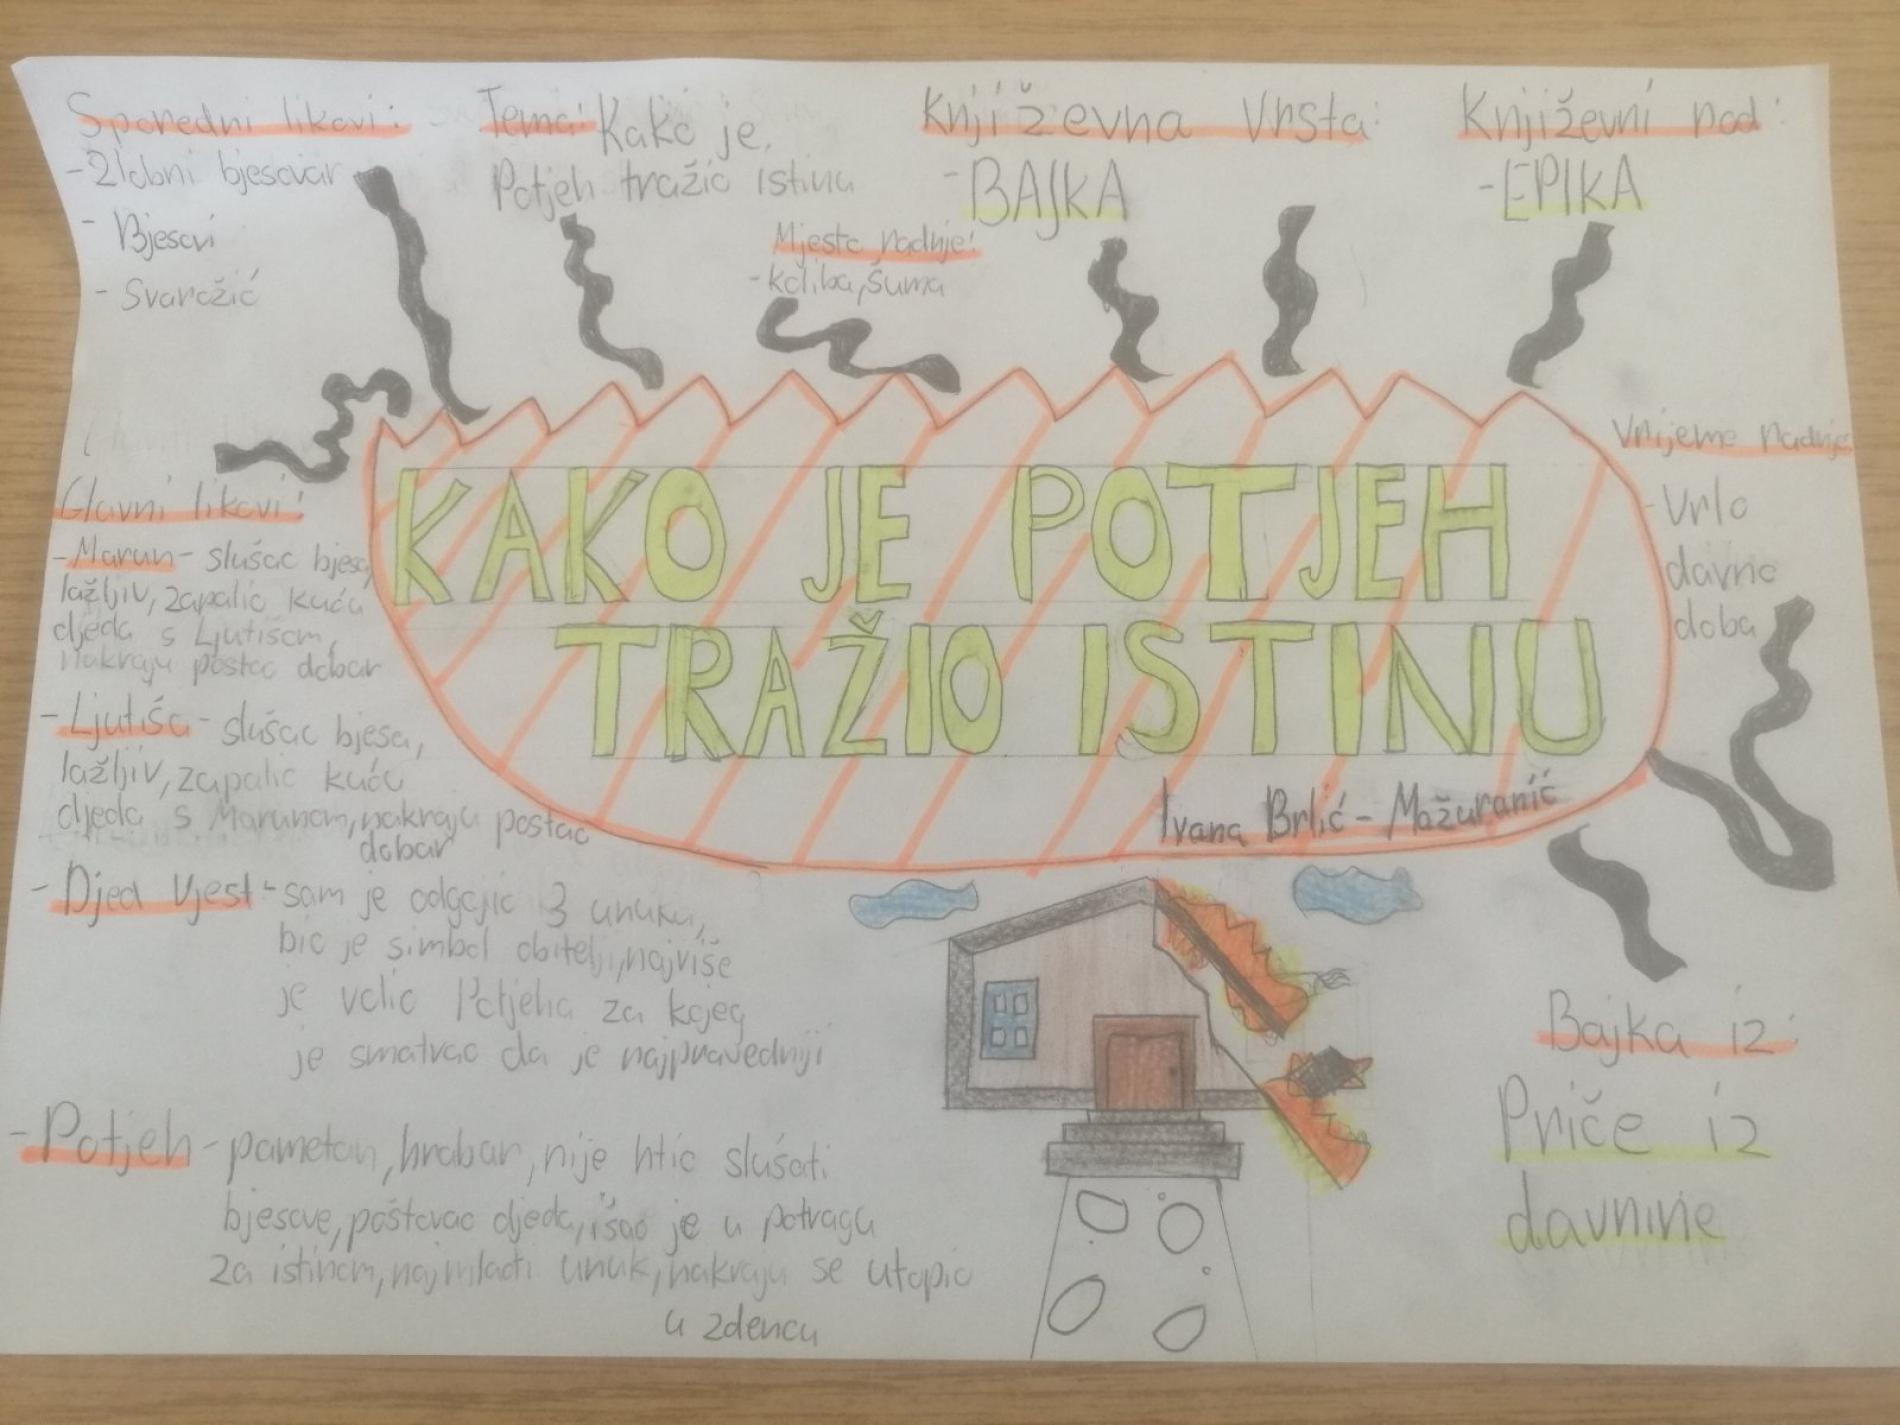 Sporedni likovi:
- Zlobni bjesovar
- Bjesovi
- Svarožić
Tema: Kako je
Potjeh tražio istinu
Mjesto radnje:
- koliba, šuma
Književna vrsta:
- BAJKA
Književni rod:
- EPIKA
Vrijeme radnje
- Vrlo
davno
doba
KAKO JE POTJEH
TRAŽIO ISTINU
Ivana Brlić - Mažuranić
Glavni likovi:
- Marun - slušao bjesa,
lažljiv, zapalio kuću
djeda s Ljutišom,
nakraju postao dobar
- Ljutiša - slušao bjesa,
lažljiv, zapalio kuću
djeda s Marunom, nakraju postao
dobar
- Djed Vjest - sam je odgojio 3 unuka,
bio je simbol obitelji, najviše
je volio Potjeha za kojeg
je smatrao da je najpravedniji
- Potjeh - pametan, hrabar, nije htio slušati
bjesove, poštovao djeda, išao je u potragu
za istinom, najmlađi unuk, nakraju se utopio
u zdencu
Bajka iz:
Priče iz
davnine